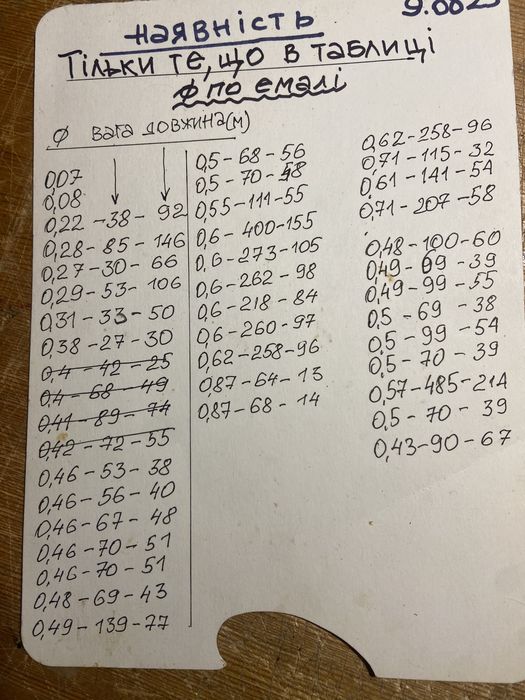 9.0025
наявність
Тільки те, що в таблиці
ϕ по емалі
ϕ вага довжина(м)
0,07
0,08
0,22-38-92
0,28-85-146
0,27-30-66
0,29-53-106
0,31-33-50
0,38-27-30
0,4-42-25
0,4-68-49
0,41-89-74
0,42-72-55
0,46-53-38
0,46-56-40
0,46-67-48
0,46-70-51
0,46-70-51
0,48-69-43
0,49-139-77
0,5-68-56
0,5-70-58
0,55-111-55
0,6-400-155
0,6-273-105
0,6-262-98
0,6-218-84
0,6-260-97
0,62-258-96
0,87-64-13
0,87-68-14
0,62-258-96
0,71-115-32
0,61-141-54
0,71-207-58
0,48-100-60
0,49-99-39
0,49-99-55
0,5-69-38
0,5-99-54
0,5-70-39
0,57-485-214
0,5-70-39
0,43-90-67